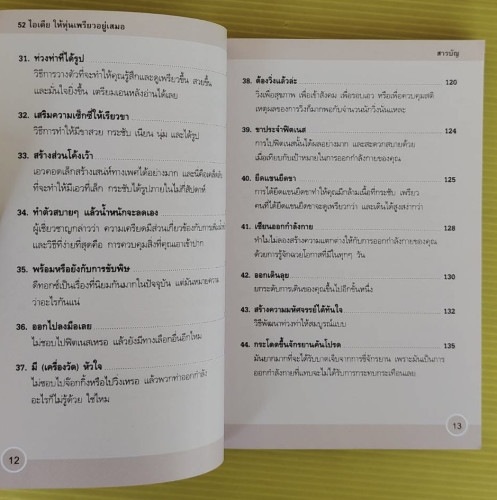 52 ไอเดีย ให้หุ่นเพรียวอยู่เสมอ
31. ท่วงท่าที่ได้รูป
วิธีการวางตัวที่จะทำให้คุณรู้สึกและดูเพรียวขึ้น สวยขึ้น
และมั่นใจยิ่งขึ้น เตรียมเอนหลังอ่านได้เลย
32. เสริมความเซ็กซี่ให้เรียวขา
วิธีการทำให้มีขาสวย กระชับ เนียน นุ่ม และได้รูป
33. สร้างส่วนโค้งเว้า
เอวคอดเล็กสร้างเสน่ห์ทางเพศได้อย่างมาก และนี่คือเคล็ดลับ
ที่จะทำให้มีเอวที่เล็ก กระชับได้รูปภายในไม่กี่สัปดาห์
34. ทำตัวสบายๆ แล้วน้ำหนักจะลดเอง
ผู้เชี่ยวชาญกล่าวว่า ความเครียดมีส่วนเกี่ยวข้องกับการเพิ่ม
และวิธีที่ง่ายที่สุดคือ การควบคุมสิ่งที่คุณเอาเข้าปาก
35. พร้อมหรือยังกับการขับพิษ
ดีทอกซ์เป็นเรื่องที่นิยมกันมากในปัจจุบัน แต่มันหมายความ
ว่าอะไรกันแน่
36. ออกไปลงมือเลย
ไม่ชอบไปฟิตเนสเหรอ แล้วยังมีทางเลือกอื่นอีกไหม
37. มี (เครื่องวัด) หัวใจ
ไม่ชอบไปจ๊อกกิ้งหรือไปวิ่งเหรอ แล้วพวกท่าออกกำลัง
อะไรก็ไม่รู้ด้วย ใช่ไหม
12
สารบัญ
38. ต้องวิ่งแล้วล่ะ 120
วิ่งเพื่อสุขภาพ เพื่อเข้าสังคม เพื่อรอบเอว หรือเพื่อควบคุมสติ
เหตุผลของการวิ่งก็มากพอกับจำนวนนักวิ่งนั่นแหละ
39. ขาประจำฟิตเนส 124
การไปฟิตเนสนั้นได้ผลอย่างมาก และสะดวกสบายด้วย
เมื่อเทียบกับเป้าหมายในการออกกำลังกายของคุณ
40. ยืดแขนยืดขา 125
การได้ยืดแขนยืดขาทำให้คุณมีกล้ามเนื้อที่กระชับ เพรียว
คนที่ได้ยืดแขนยืดขาจะดูเพรียวกว่า และเดินได้สูงสง่ากว่า
41. เซียนออกกำลังกาย 128
ทำไมไม่ลองสร้างความแตกต่างให้กับการออกกำลังกายของคุณ
ด้วยการรู้จักฉวยโอกาสที่มีในทุกๆ วัน
42. ออกเดินลุย 130
ยกระดับการเดินของคุณขึ้นไปอีกขั้นหนึ่ง
43. สร้างความมหัศจรรย์ได้ทันใจ 132
วิธีพัฒนาท่วงท่าให้สมบูรณ์แบบ
44. กระโดดขึ้นจักรยานคันโปรด 135
มันยากมากที่จะได้รับบาดเจ็บจากการขี่จักรยาน เพราะมันเป็นการ
ออกกำลังกายที่แทบจะไม่ได้รับการกระทบกระเทือนเลย
13